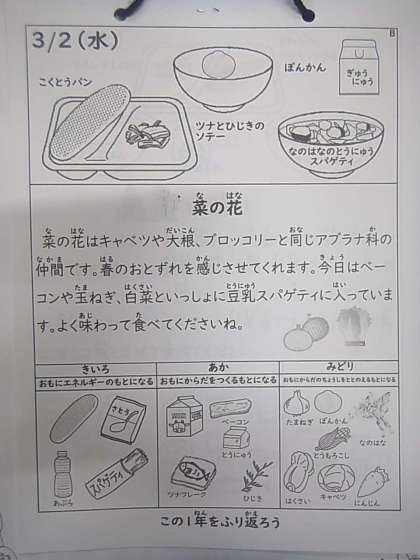 3/2(水)
B
こくとうパン
ぽんかん
ぎゅう
にゅう
ツナとひじきの
ソテー
なのはなのとうにゅう
スパゲティ
な はな
菜の花
な はな だいこん おな か
菜の花はキャベツや大根、ブロッコリーと同じアブラナ科の
なかま はる かん きょう
仲間です。春のおとずれを感じさせてくれます。今日はベー
たま はくさい とうにゅう はい
コンや玉ねぎ、白菜といっしょに豆乳スパゲティに入っていま
あじ た
す。よく味わって食べてくださいね。
きいろ あか みどり
おもにエネルギーのもとになる おもにからだをつくるもとになる おもにからだのちょうしをととのえるもとになる
さとう
あぶら
スパゲティ
ベーコン
とうにゅう
ツナフレーク
ひじき
たまねぎ
ぽんかん
なのはな
とうもろこし
はくさい
キャベツ
にんじん
ねん かえ
この1年をふり返ろう